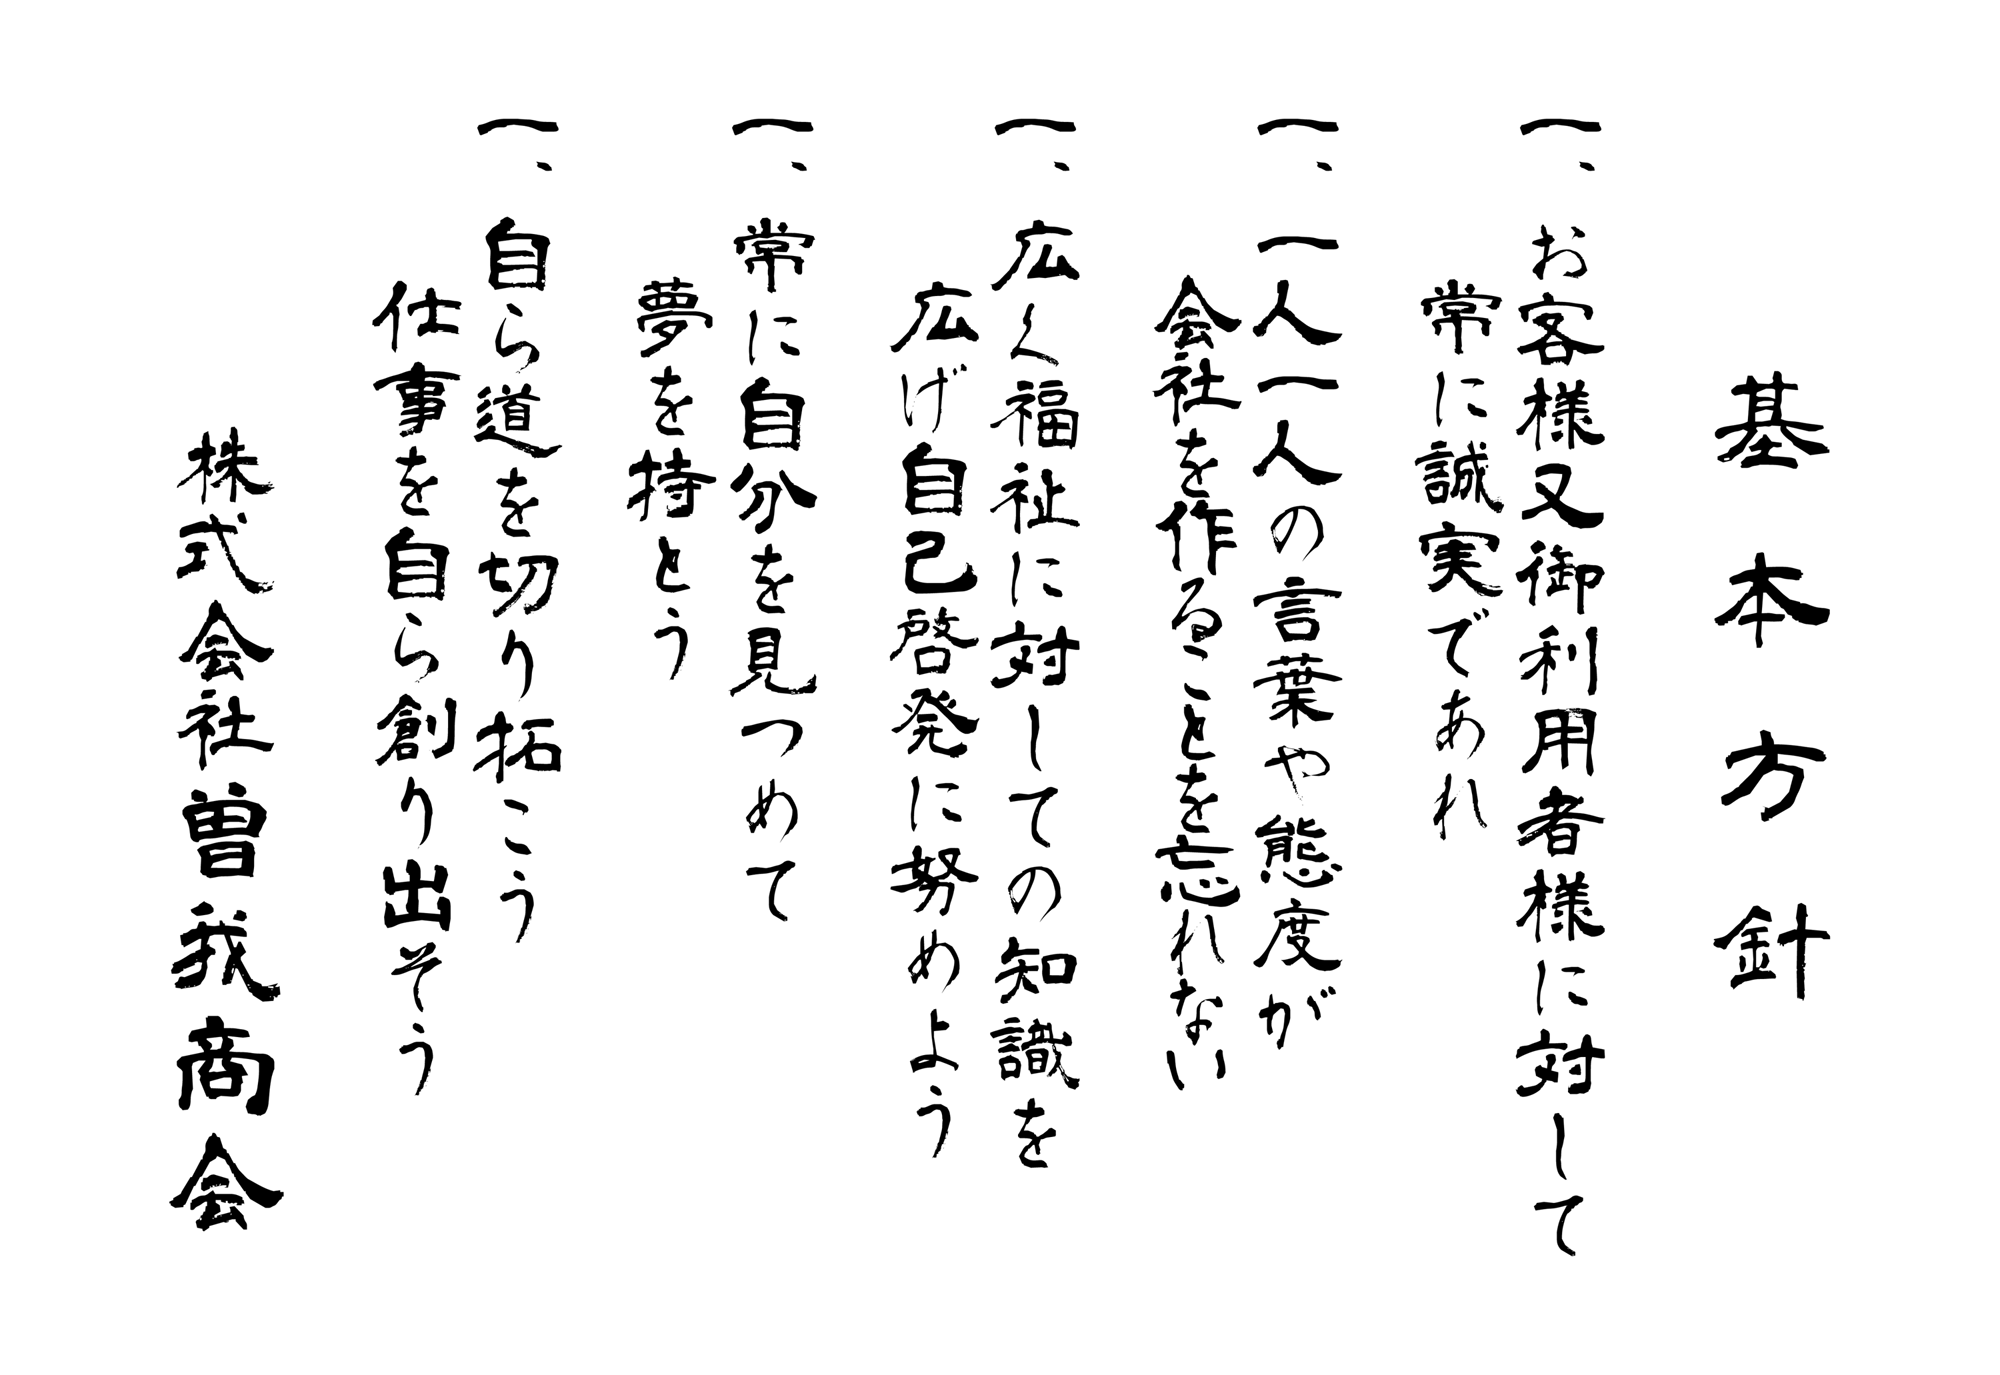 基本方針
一、お客様又御利用者様に対して
常に誠実であれ
一、一人一人の言葉や態度が
会社を作ることを忘れない
一、広く福祉に対しての知識を
広げ自己啓発に努めよう
一、常に自分を見つめて
夢を持とう
一、自ら道を切り拓こう
仕事を自ら創り出そう
株式会社曽我商会